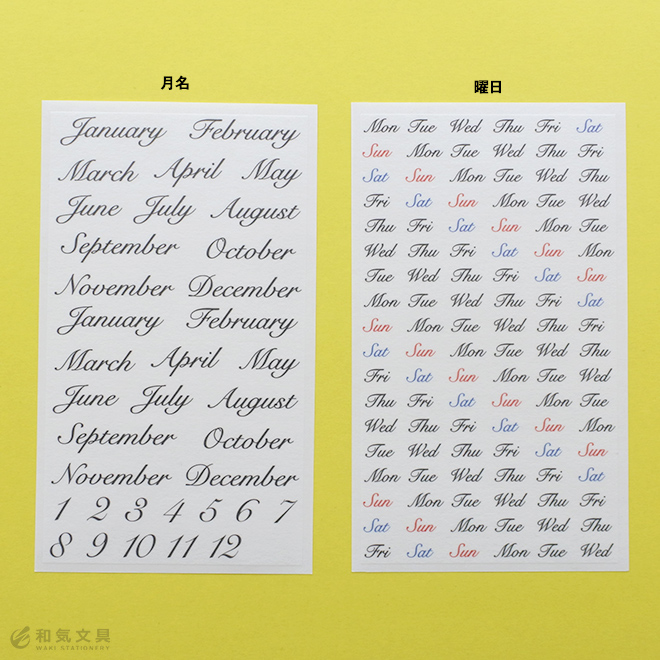 月名
January February
March April May
June July August
September October
November December
January February
March April May
June July August
September October
November December
1 2 3 4 5 6 7
8 9 10 11 12
曜日
Mon Tue Wed Thu Fri Sat
Sun Mon Tue Wed Thu Fri
Sat Sun Mon Tue Wed Thu
Fri Sat Sun Mon Tue Wed
Thu Fri Sat Sun Mon Tue
Wed Thu Fri Sat Sun Mon
Tue Wed Thu Fri Sat Sun
Mon Tue Wed Thu Fri Sat
Sun Mon Tue Wed Thu Fri
Sat Sun Mon Tue Wed Thu
Fri Sat Sun Mon Tue Wed
Thu Fri Sat Sun Mon Tue
Wed Thu Fri Sat Sun Mon
Tue Wed Thu Fri Sat Sun
Mon Tue Wed Thu Fri Sat
Sun Mon Tue Wed Thu Fri
Sat Sun Mon Tue Wed Thu
Fri Sat Sun Mon Tue Wed
和気文具
WAKI STATIONERY